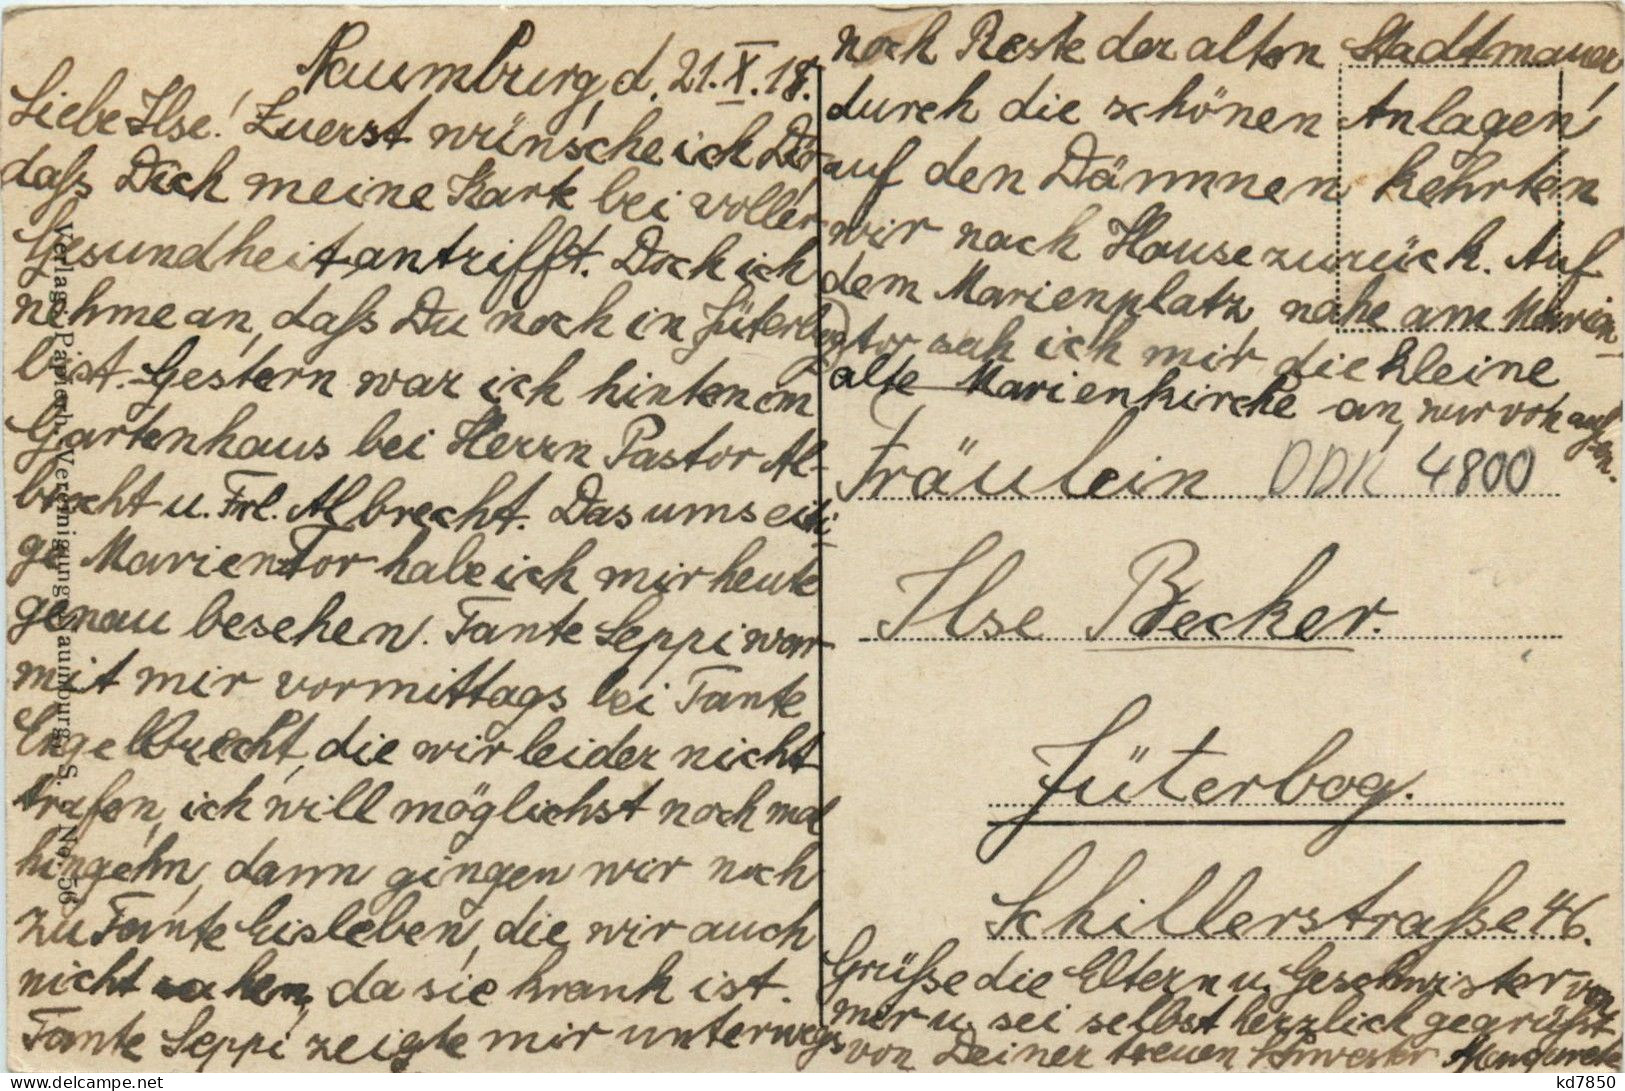 Naumburg, d. 21. X. 18.
Liebe Ilse! Zuerst wünsche ich Dir
daß Dich meine Karte bei voller
Gesundheit antrifft. Doch ich
nehme an, daß Du noch in Jüterbog
bist. Gestern war ich hinten im
Gartenhaus bei Herrn Pastor Al-
brecht u. Frl. Albrecht. Das umseiti-
ge Marien Tor habe ich mir heute
genau besehen. Tante Seppi war
mit mir vormittags bei Tante
Engelbrecht, die wir leider nicht
trafen, ich will möglichst noch mal
hingehn, dann gingen wir noch
zu Tante Eisleben, die wir auch
nicht sahen, da sie krank ist.
Tante Seppi zeigte mir unterwegs
noch Reste der alten Stadtmauer
durch die schönen Anlagen
auf den Dämmen kehrten
wir nach Hause zurück. Auf
dem Marienplatz, nahe am Marien-
tor sah ich mir die kleine
alte Marienkirche an, nur von auß-
en.
Fräulein DDR 4800
Ilse Becker.
Jüterbog.
Schillerstraße 46.
Grüße die Eltern u. Geschwister von
mir u. sei selbst herzlich gegrüßt
von Deiner treuen Schwester Margarete
Verlag: Papierh. Vereinigung Naumburg a. S. No. 56
kd7850